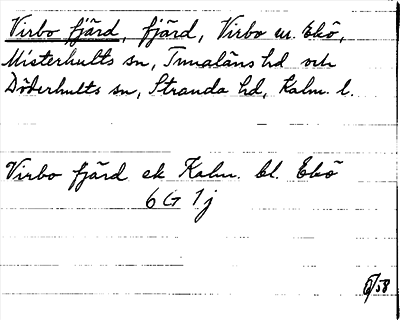 Virbo fjärd, fjärd, Virbo en. Ekö,
Misterhults sn, Tunaläns hd och
Döderhults sn, Stranda hd, Kalm. l.
Virbo fjärd ek Kalm. bl. Ekö
6 G 1 j
/58